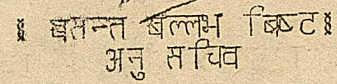 ॥ बसन्त बल्लभ बिष्ट ॥
अनु सचिव